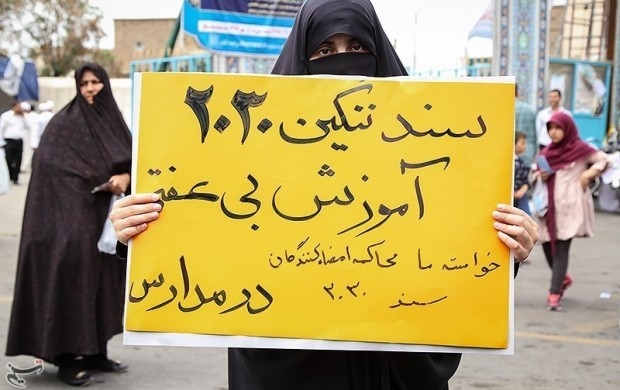 سند ننگین ۲۰۳۰
آموزش بی عفتی
در مدارس
خواسته ما محاکمه امضاءکنندگان
سند ۲۰۳۰